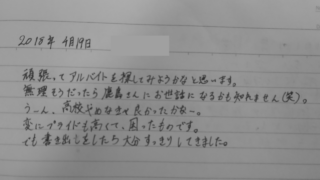 2018年 4月19日
頑張ってアルバイトを探してみようかなと思います。
無理そうだったら農協さんにお世話になるかも知れません(笑)。
うーん、高校やめなきゃ良かったかなー。
変にプライドも高くて、困ったものです。
でも書き出しをしたら大分すっきりしてきました。